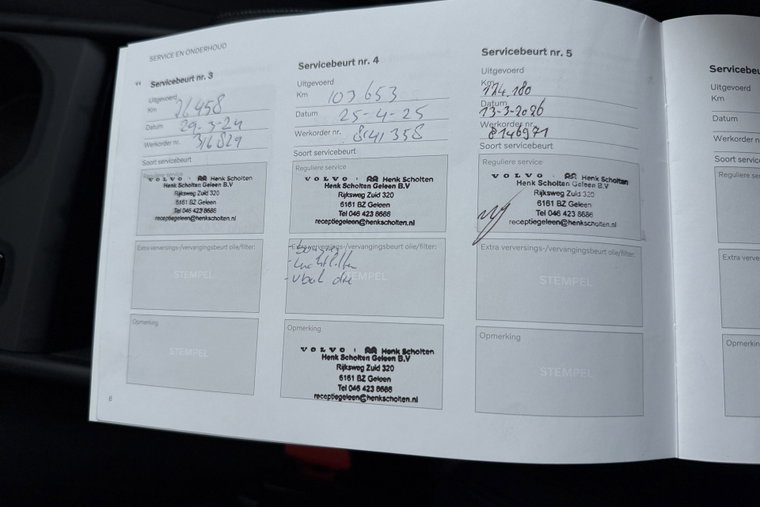 SERVICE EN ONDERHOUD
Servicebeurt nr. 3
Uitgevoerd
Km 76458
Datum 29-3-24
Werkorder nr. 316829
Soort servicebeurt
Reguliere service
VOLVO Henk Scholten
Henk Scholten Geleen B.V
Rijksweg Zuid 320
6161 BZ Geleen
Tel 046 423 8686
receptiegeleen@henkscholten.nl
Extra verversings-/vervangingsbeurt olie/filter:
STEMPEL
Opmerking
STEMPEL
6
Servicebeurt nr. 4
Uitgevoerd
Km 107653
Datum 25-4-25
Werkorder nr. 8141358
Soort servicebeurt
Reguliere service
VOLVO Henk Scholten
Henk Scholten Geleen B.V
Rijksweg Zuid 320
6161 BZ Geleen
Tel 046 423 8686
receptiegeleen@henkscholten.nl
Extra verversings-/vervangingsbeurt olie/filter:
- bougies
- Luchtfilter
STEMPEL
Opmerking
VOLVO Henk Scholten
Henk Scholten Geleen B.V
Rijksweg Zuid 320
6161 BZ Geleen
Tel 046 423 8686
receptiegeleen@henkscholten.nl
Servicebeurt nr. 5
Uitgevoerd
Km 124.180
Datum 13-3-2026
Werkorder nr. 8146971
Soort servicebeurt
Reguliere service
VOLVO Henk Scholten
Henk Scholten Geleen B.V
Rijksweg Zuid 320
6161 BZ Geleen
Tel 046 423 8686
receptiegeleen@henkscholten.nl
Extra verversings-/vervangingsbeurt olie/filter:
STEMPEL
Opmerking
STEMPEL
Servicebeu
Uitgevoerd
Km
Datum
Werkorder nr.
Soort service
Reguliere s
Extra verve
Opmerkin